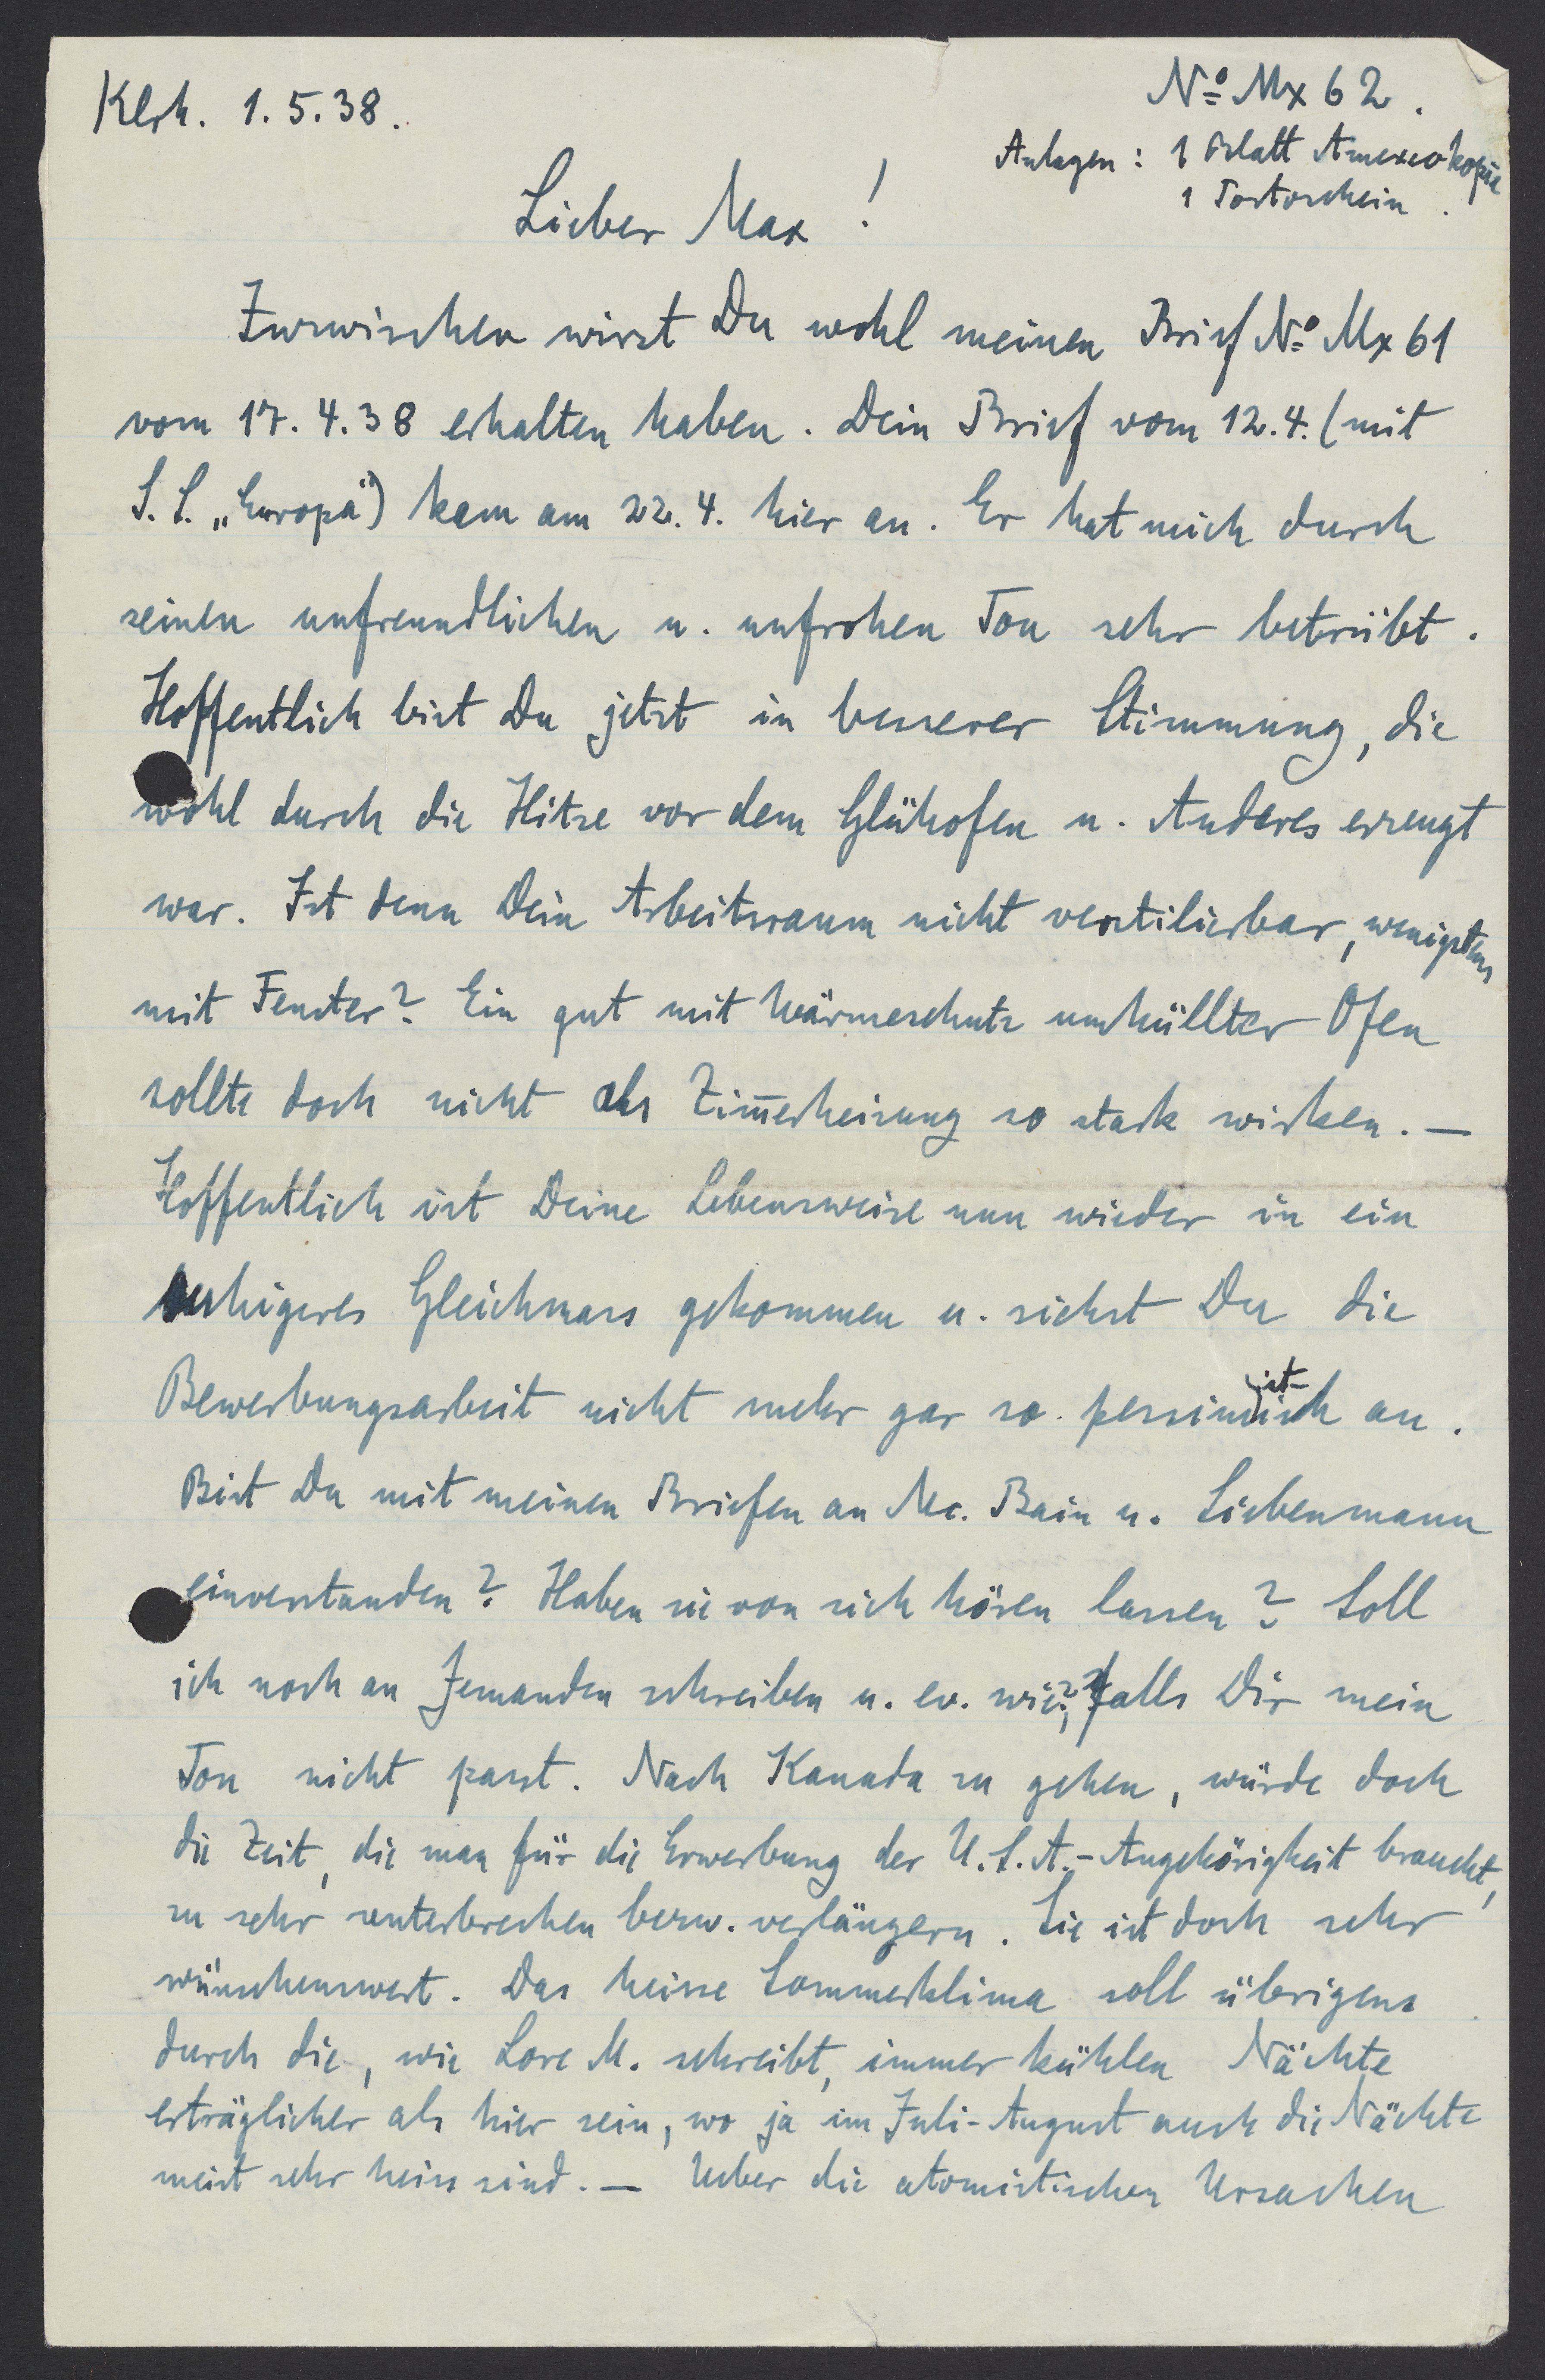 Klrh. 1.5.38.
No Mx 62.
Anlagen: 1 Blatt Amexcokopie
1 Portoschein.
Lieber Max!
Inzwischen wirst Du wohl meinen Brief No Mx 61
vom 17.4.38 erhalten haben. Dein Brief vom 12.4. (mit
S.S. „Europa") kam am 22.4. hier an. Er hat mich durch
seinen unfreundlichen u. unfrohen Ton sehr betrübt.
Hoffentlich bist Du jetzt in besserer Stimmung, die
wohl durch die Hitze vor dem Glühofen u. Anderes erzeugt
war. Ist denn Dein Arbeitsraum nicht ventilierbar, wenigstens
mit Fenster? Ein gut mit Wärmeschutz umhüllter Ofen
sollte doch nicht als Zim̄erheizung so stark wirken. —
Hoffentlich ist Deine Lebensweise nun wieder in ein
ruhigeres Gleichmass gekommen u. siehst Du die
Bewerbungsarbeit nicht mehr gar so pessimistisch an.
Bist Du mit meinen Briefen an Mc. Bain u. Liebenmann
einverstanden? Haben sie von sich hören lassen? Soll
ich noch an Jemanden schreiben u. ev. wie?, falls Dir mein
Ton nicht passt. Nach Kanada zu gehen, würde doch
die Zeit, die man für die Erwerbung der U.S.A.-Angehörigkeit braucht,
zu sehr unterbrechen bezw. verlängern. Sie ist doch sehr
wünschenswert. Das heisse Sommerklima soll übrigens
durch die, wie Lore M. schreibt, immer kühlen Nächte
erträglicher als hier sein, wo ja im Juli-August auch die Nächte
meist sehr heiss sind. — Ueber die atomistischen Ursachen